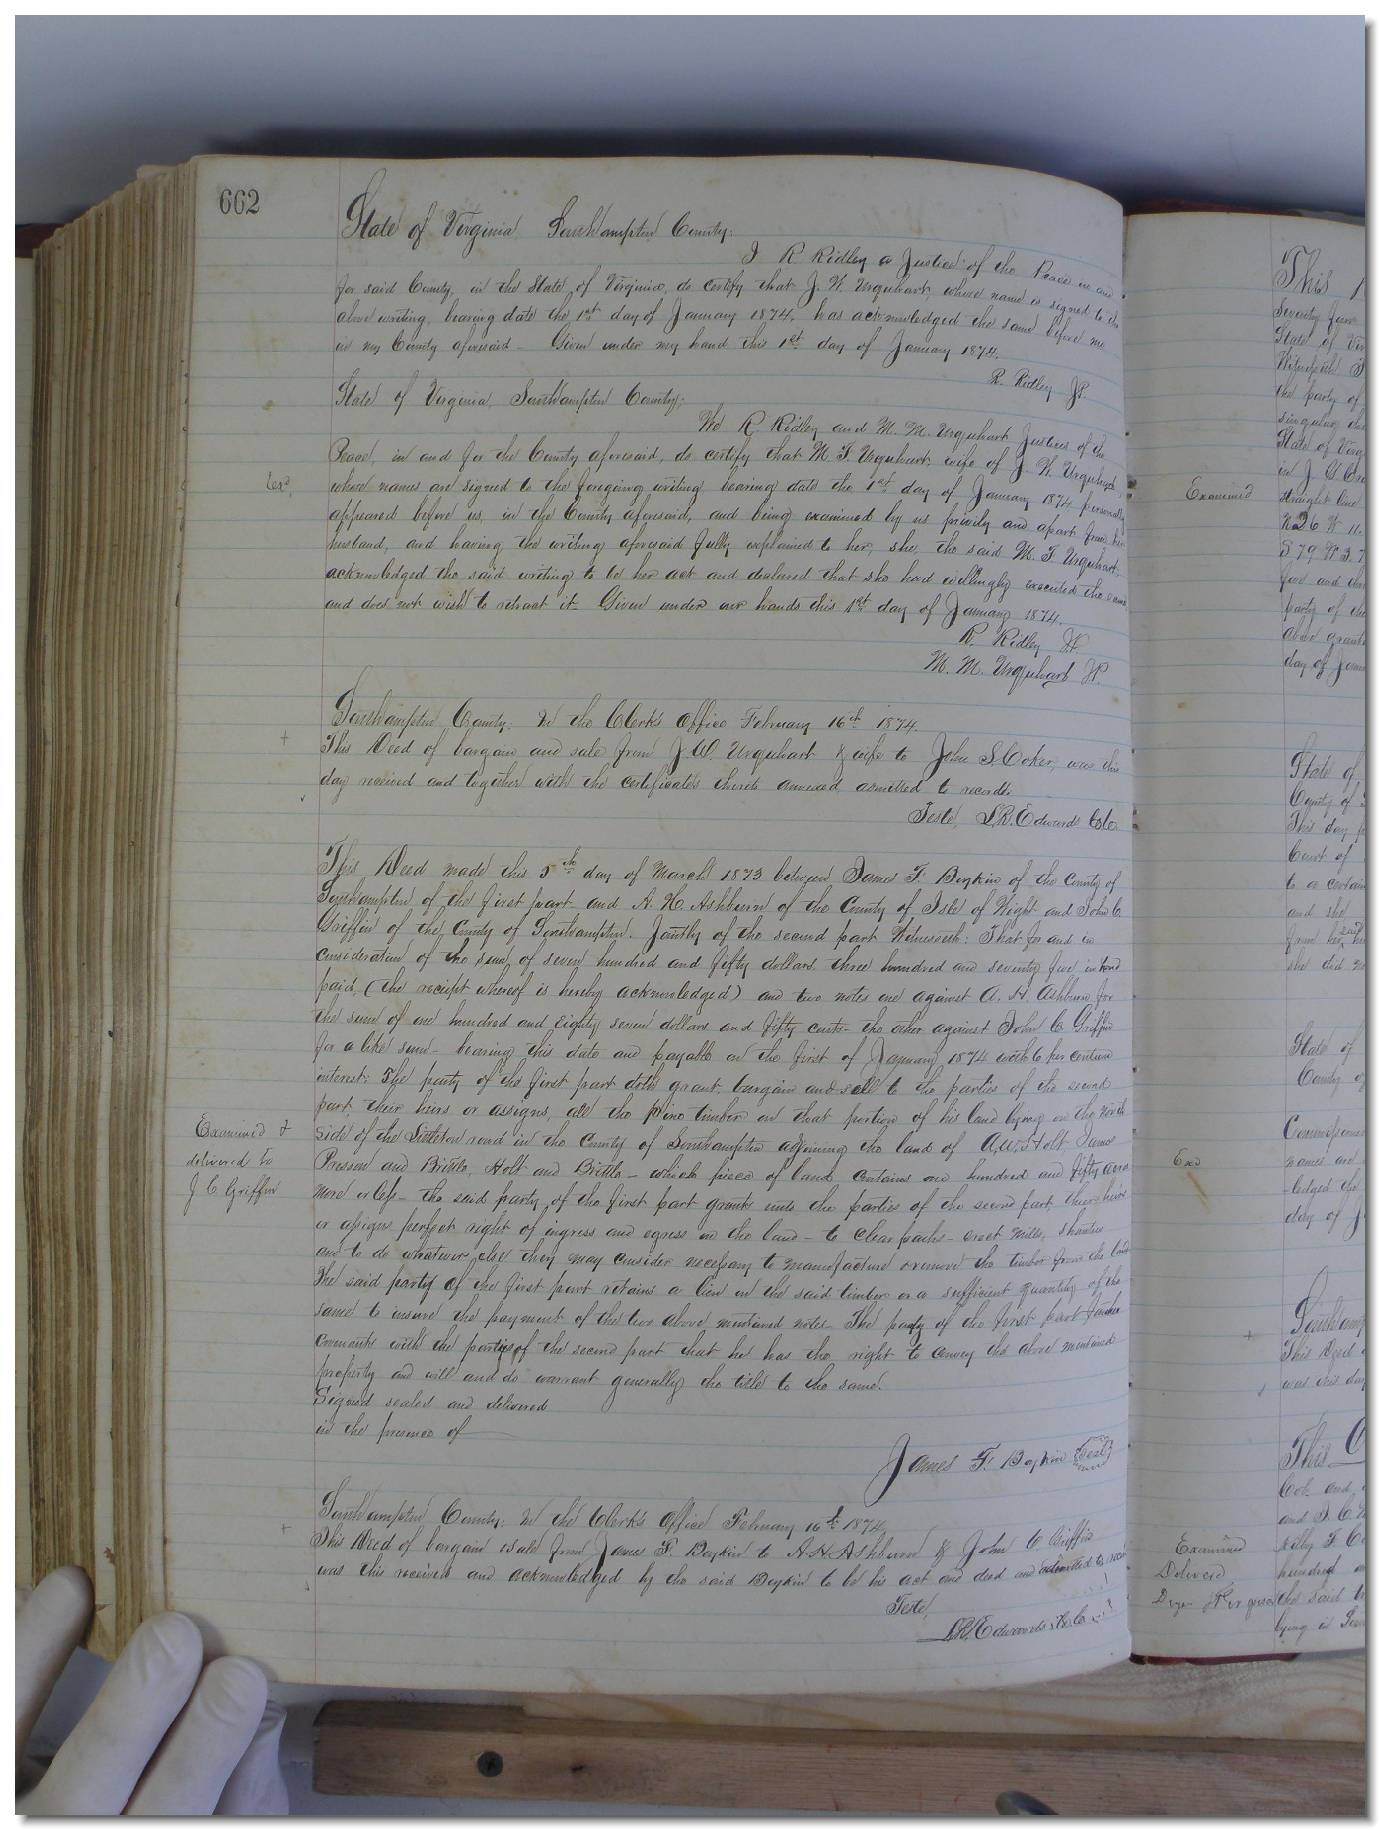 662
State of Virginia Southampton County;
I R Ridley a Justice of the Peace in and
for said County, in the State of Virginia, do certify that J. W. Urquhart, whose name is signed to the
above writing, bearing date the 1st day of January 1874, has acknowledged the same before me
in my County aforesaid – Given under my hand this 1st day of January 1874.
R. Ridley JP.
State of Virginia, Southampton County;
We R. Ridley and M. M. Urquhart Justices of the
Peace, in and for the County aforesaid, do certify that M. F. Urquhart, wife of J. W. Urquhart,
whose names are signed to the foregoing writing bearing date the 1st day of January 1874 personally
appeared before us, in the County aforesaid, and being examined by us privily and apart from her
husband, and having the writing aforesaid fully explained to her, she, the said M. F. Urquhart,
acknowledged the said writing to be her act and declared that she had willingly executed the same
and does not wish to retract it. Given under our hands this 1st day of January 1874.
R. Ridley J.P.
M. M. Urquhart JP.
Southampton County: In the Clerk's Office February 16th 1874.
This Deed of bargain and sale from J. W. Urquhart & wife to John S. Coker, was this
day received and together with the certificates thereto annexed, admitted to record.
Teste, L.R. Edwards Clc.
This Deed made this 5th day of March 1873 between James F. Boykin of the County of
Southampton of the first part and A. H. Ashburn of the County of Isle of Wight and John C.
Griffin of the County of Southampton. Jointly of the second part Witnesseth: That for and in
consideration of the sum of seven hundred and fifty dollars three hundred and seventy five in hand
paid, (the receipt whereof is hereby acknowledged) and two notes one against A. H. Ashburn for
the sum of one hundred and Eighty seven dollars and fifty cents – the other against John C Griffin
for a like sum – bearing this date and payable on the first of January 1874 with 6 per centum
interest: The party of the first part doth grant, bargain and sell to the parties of the second
part, their heirs or assigns, all the pine timber on that portion of his land lying on the north
side of the Littleton road in the County of Southampton adjoining the land of A. W. Holt James
Presson and Brittle, Holt and Brittle – which piece of land contains one hundred and fifty acres
more or less – the said party of the first part grants unto the parties of the second part, their heirs
or assigns perfect right of ingress and egress on the land – to clear paths – erect Mills, shanties
and to do whatever else they may consider necessary to manufacture or remove the timber from the land
The said party of the first part retains a lien on the said timber or a sufficient quantity of the
same to insure the payment of the two above mentioned notes – The party of the first part further
covenants with the parties of the second part that he has the right to convey the above mentioned
property and will and do warrant generally the title to the same.
Signed sealed and delivered
in the presence of
James F. Boykin Seal
Southampton County: In the Clerk's Office February 16th 1874.
This Deed of bargain & sale from James F. Boykin to A H Ashburn & John C Griffin
was this received and acknowledged by the said Boykin to be his act and deed and admitted to record
Teste,
L.R. Edwards
Examined &
delivered to
J C Griffin
Examined
This
Seventy four
State of
Witnesseth
the party of
State of
in J
straight line
S 79 W 3.
five and
party of the
above
day of
State of
County of
This day
Court of
to a certain
and she
she did
State of
County of
names are
day of
Southamp
This Deed
was this day
This
and
Examined
Delivered
hundred
the said
lying in